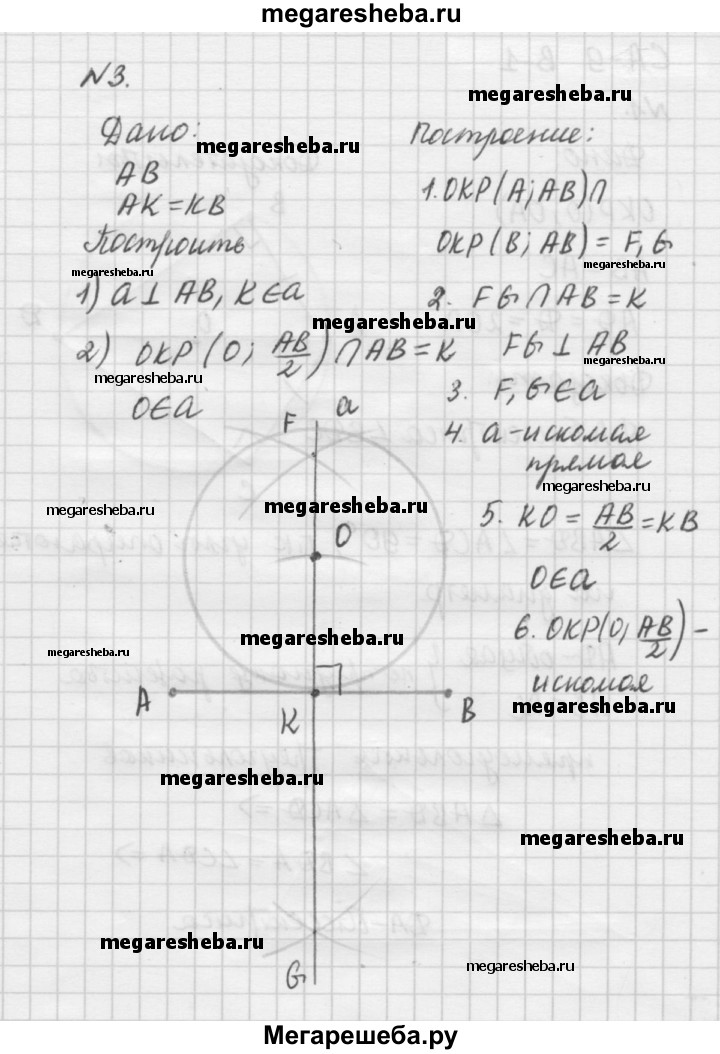 megaresheba.ru
№3.
megaresheba.ru
Дано:
megaresheba.ru
AB
AK=KB
Построить
megaresheba.ru
1) a⊥AB, K∈a
megaresheba.ru
2) ОКР(O; AB/2)∩AB=K
megaresheba.ru
O∈a
Построение:
1. ОКР(A; AB)∩
ОКР(B; AB)=F, G
megaresheba.ru
2. FG∩AB=K
FG⊥AB
megaresheba.ru
3. F, G∈a
4. a-искомая
прямая
megaresheba.ru
5. KO=AB/2=KB
O∈a
6. ОКР(O; AB/2)-
искомая
megaresheba.ru
F
a
megaresheba.ru
megaresheba.ru
O
megaresheba.ru
megaresheba.ru
A
K
B
megaresheba.ru
megaresheba.ru
megaresheba.ru
megaresheba.ru
G
Мегарешеба.ру